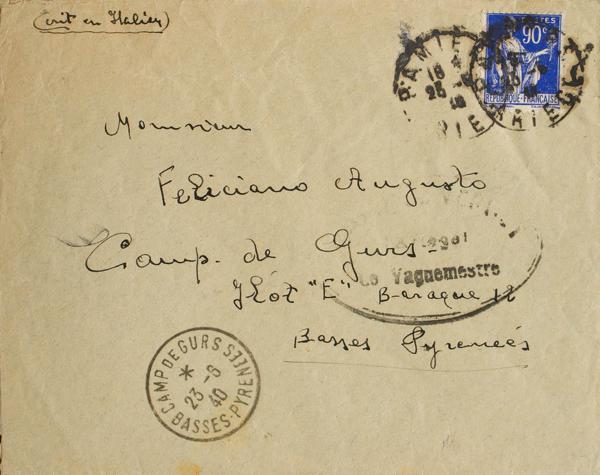 (écrit en Italien)
POSTES
90c
REPUBLIQUE FRANÇAISE
PAMIERS
18
25
ARIEGE
Monsieur
Feliciano Augusto
Camp. de Gurs-
Le Vaguemestre
Ilôt "E" Baraque 12
Basses Pyreneés
CAMP DE GURS
*
23-6
40
BASSES-PYRENEES